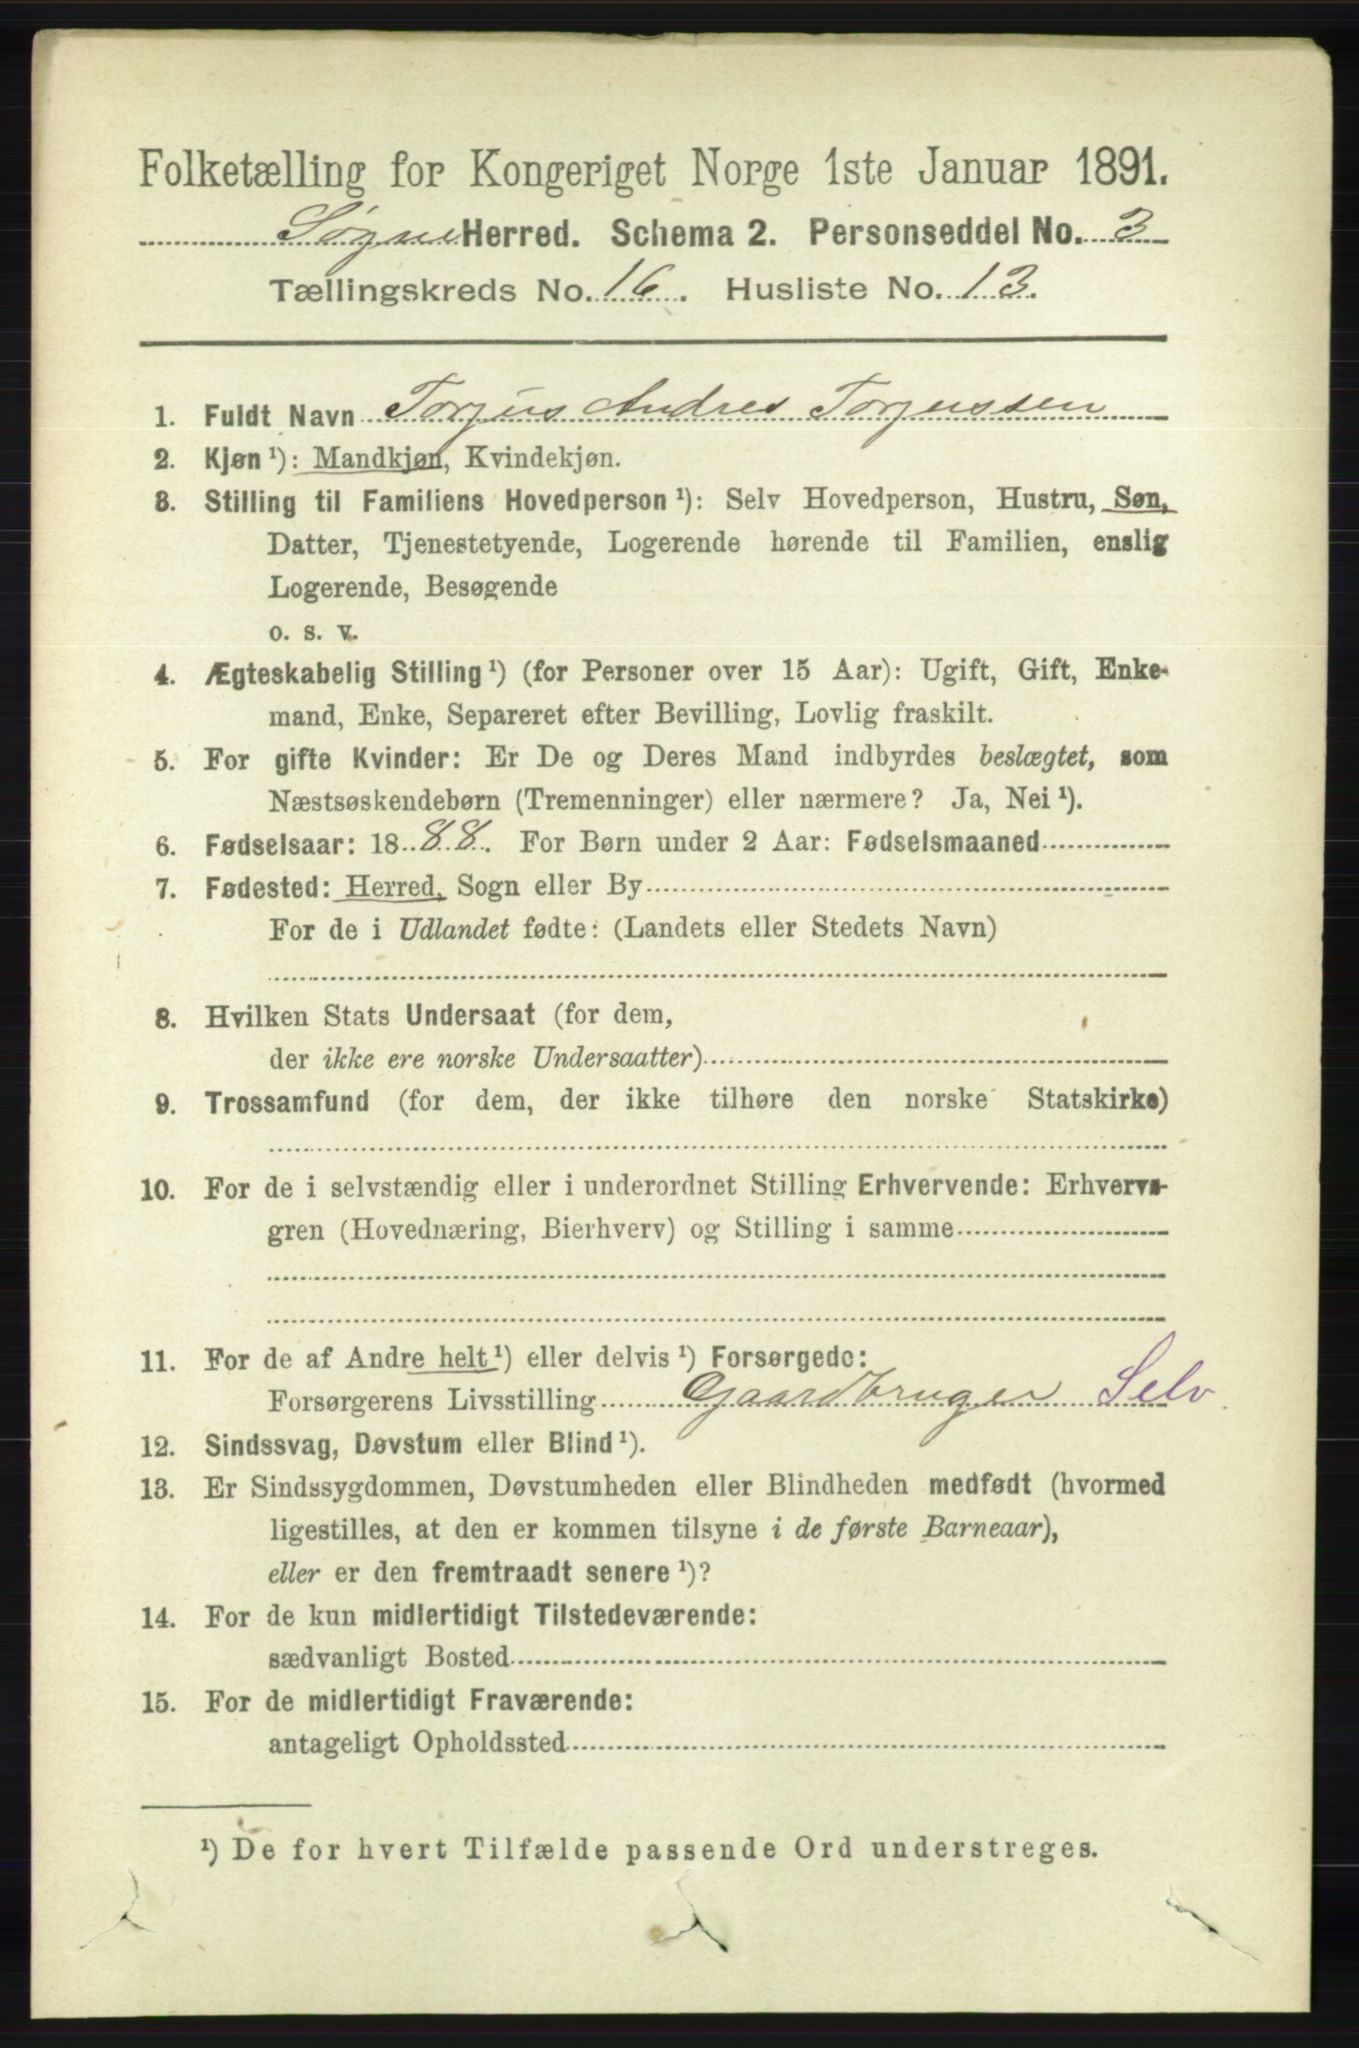 Folketælling for Kongeriget Norge 1ste Januar 1891.
Søgne Herred. Schema 2. Personseddel No. 3
Tællingskreds No. 16. Husliste No. 13.
1. Fuldt Navn Torjus Andres Torjussen
2. Kjøn ¹): Mandkjøn, Kvindekjøn.
3. Stilling til Familiens Hovedperson ¹): Selv Hovedperson, Hustru, Søn,
Datter, Tjenestetyende, Logerende hørende til Familien, enslig
Logerende, Besøgende
o. s. v.
4. Ægteskabelig Stilling ¹) (for Personer over 15 Aar): Ugift, Gift, Enke-
mand, Enke, Separeret efter Bevilling, Lovlig fraskilt.
5. For gifte Kvinder: Er De og Deres Mand indbyrdes beslægtet, som
Næstsøskendebørn (Tremenninger) eller nærmere? Ja, Nei ¹).
6. Fødselsaar: 1888. For Børn under 2 Aar: Fødselsmaaned
7. Fødested: Herred, Sogn eller By
For de i Udlandet fødte: (Landets eller Stedets Navn)
8. Hvilken Stats Undersaat (for dem,
der ikke ere norske Undersaatter)
9. Trossamfund (for dem, der ikke tilhøre den norske Statskirke)
10. For de i selvstændig eller i underordnet Stilling Erhvervende: Erhvervs-
gren (Hovednæring, Bierhverv) og Stilling i samme
11. For de af Andre helt ¹) eller delvis ¹) Forsørgede:
Forsørgerens Livsstilling Gaardbruger Selv
12. Sindssvag, Døvstum eller Blind ¹).
13. Er Sindssygdommen, Døvstumheden eller Blindheden medfødt (hvormed
ligestilles, at den er kommen tilsyne i de første Barneaar),
eller er den fremtraadt senere ¹)?
14. For de kun midlertidigt Tilstedeværende:
sædvanligt Bosted
15. For de midlertidigt Fraværende:
antageligt Opholdssted
¹) De for hvert Tilfælde passende Ord understreges.